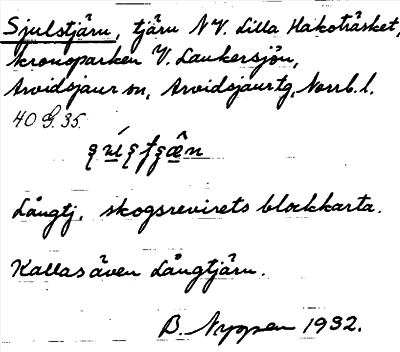 Sjulstjärn, tjärn N V. Lilla Hakoträsket,
kronoparken V. Laukersjön,
Arvidsjaur sn, Arvidsjaur tg, Norrb. l.
40 G. 35.
Långtj. skogsrevirets blockkarta.
Kallas även Långtjärn.
B. Nyppen 1932.